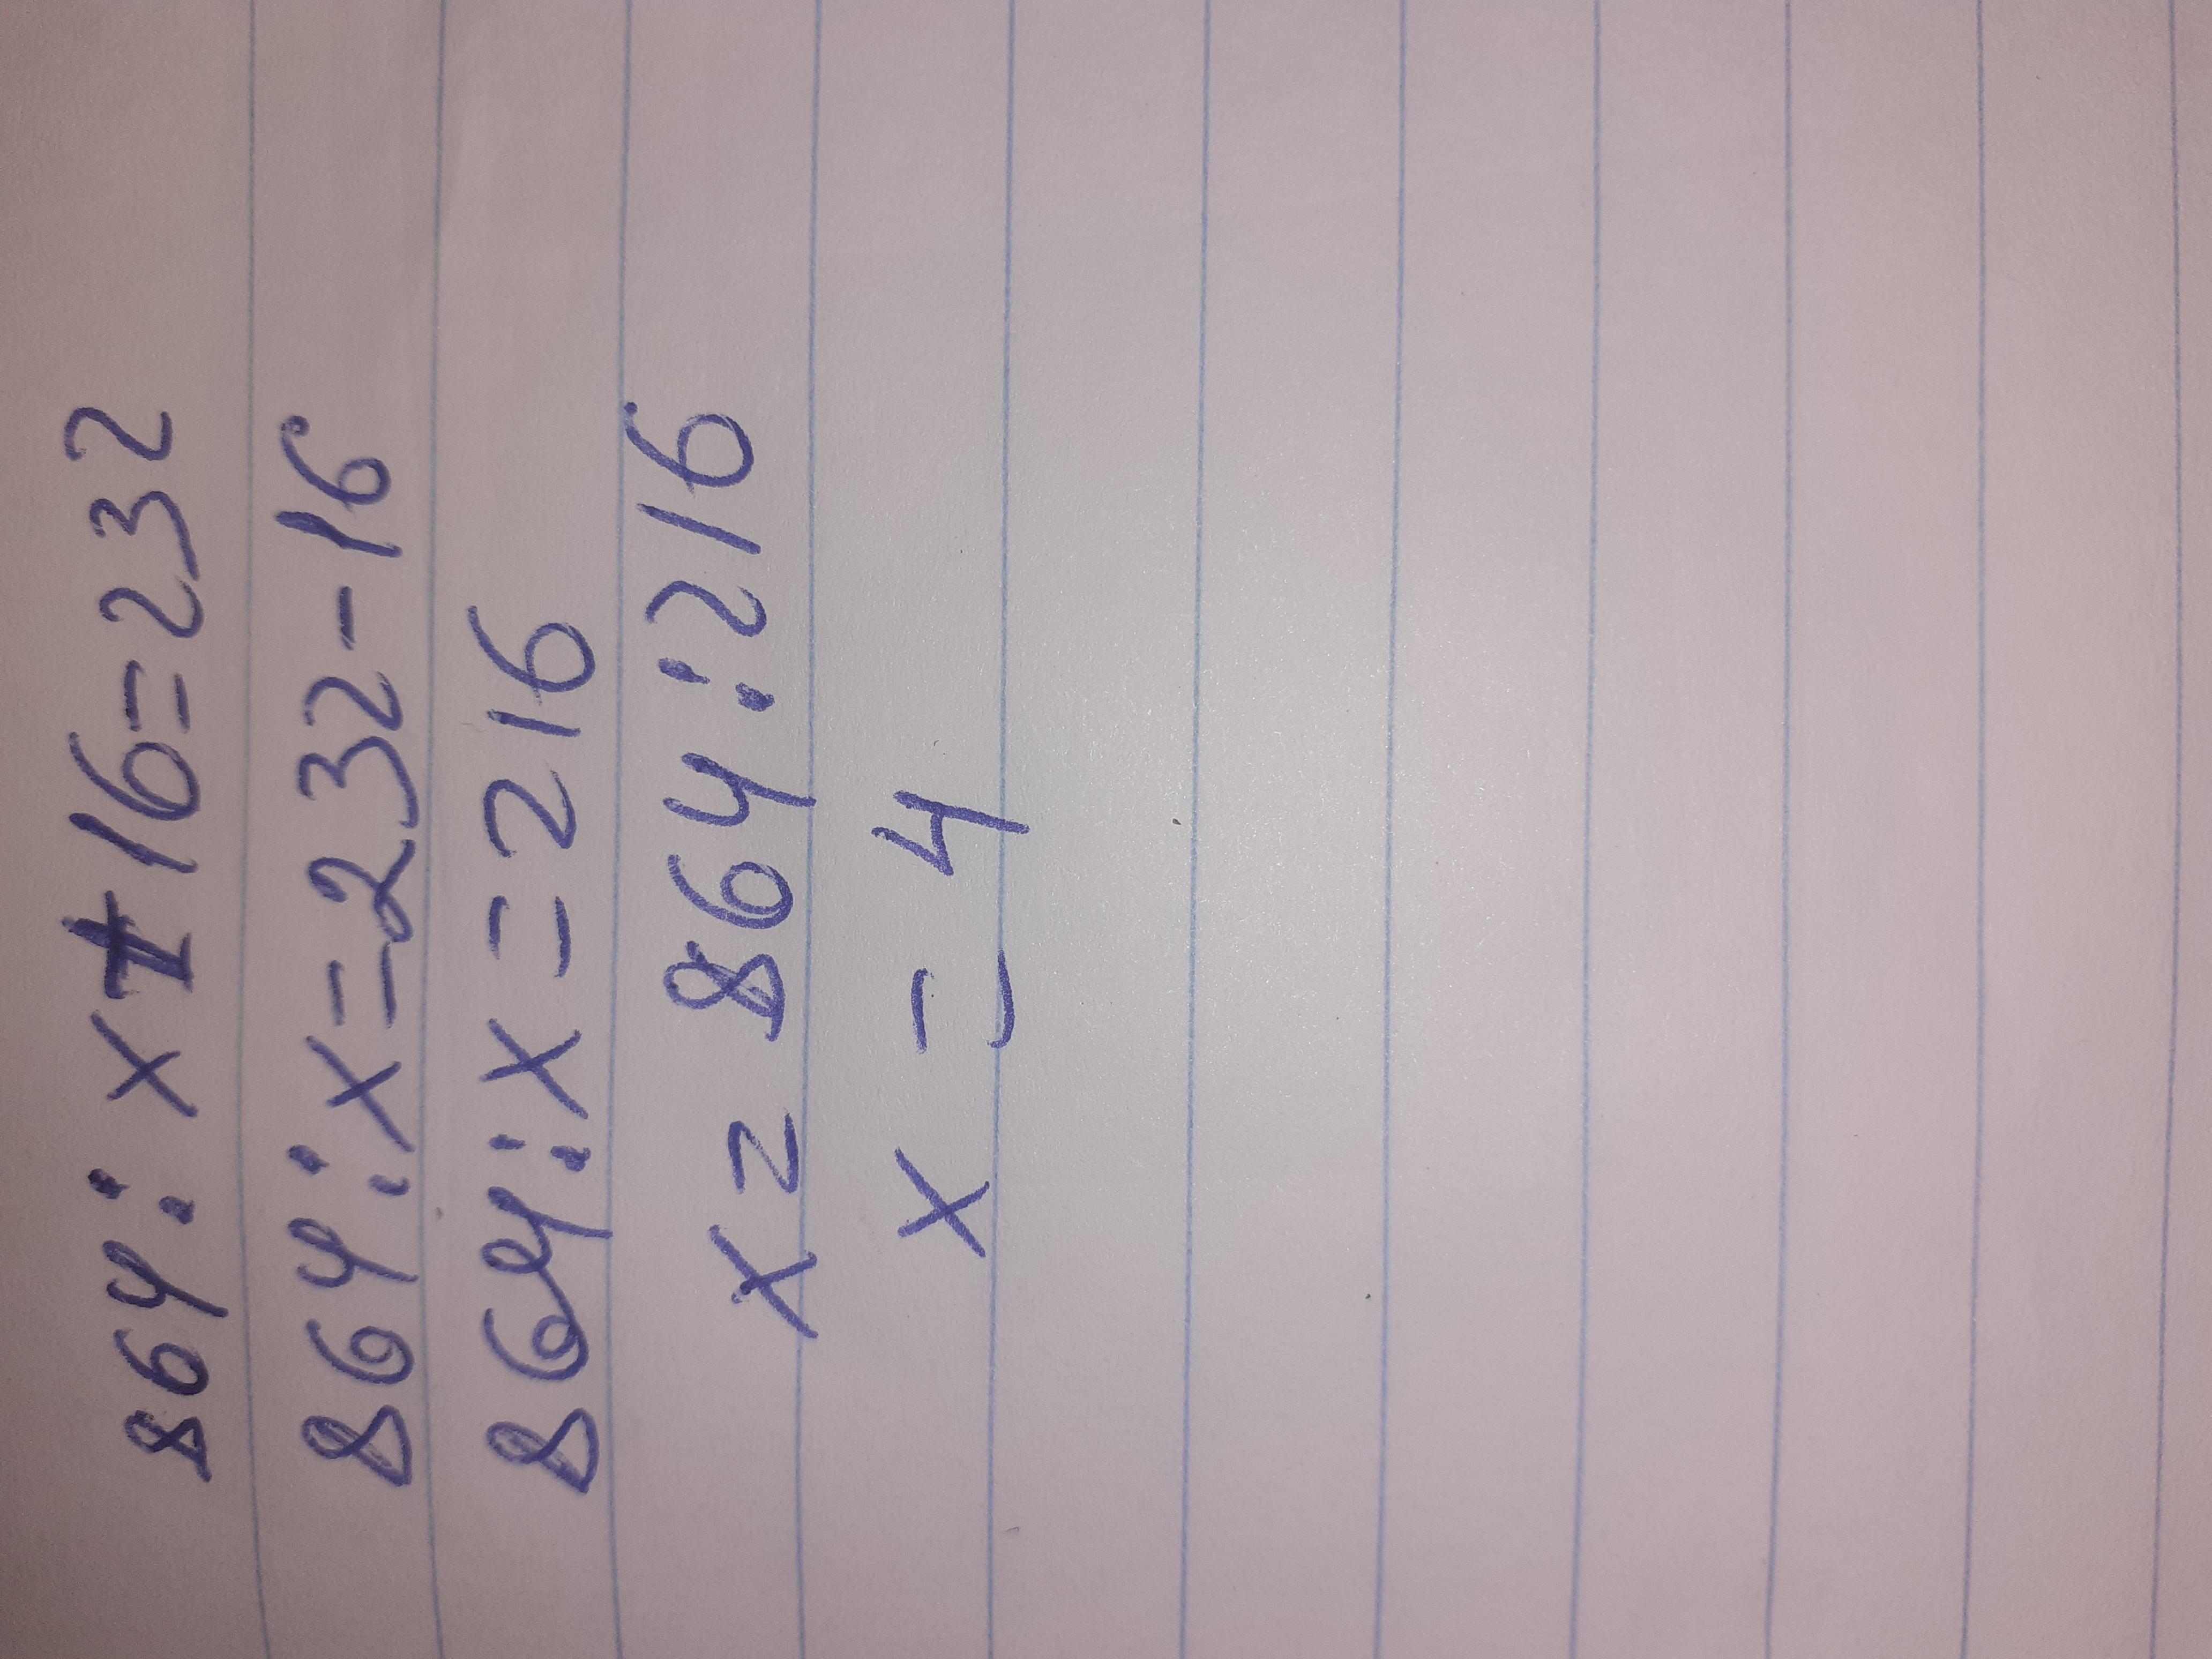 864:x+16=232
864:x=232-16
864:x=216
x=864:216
x=4